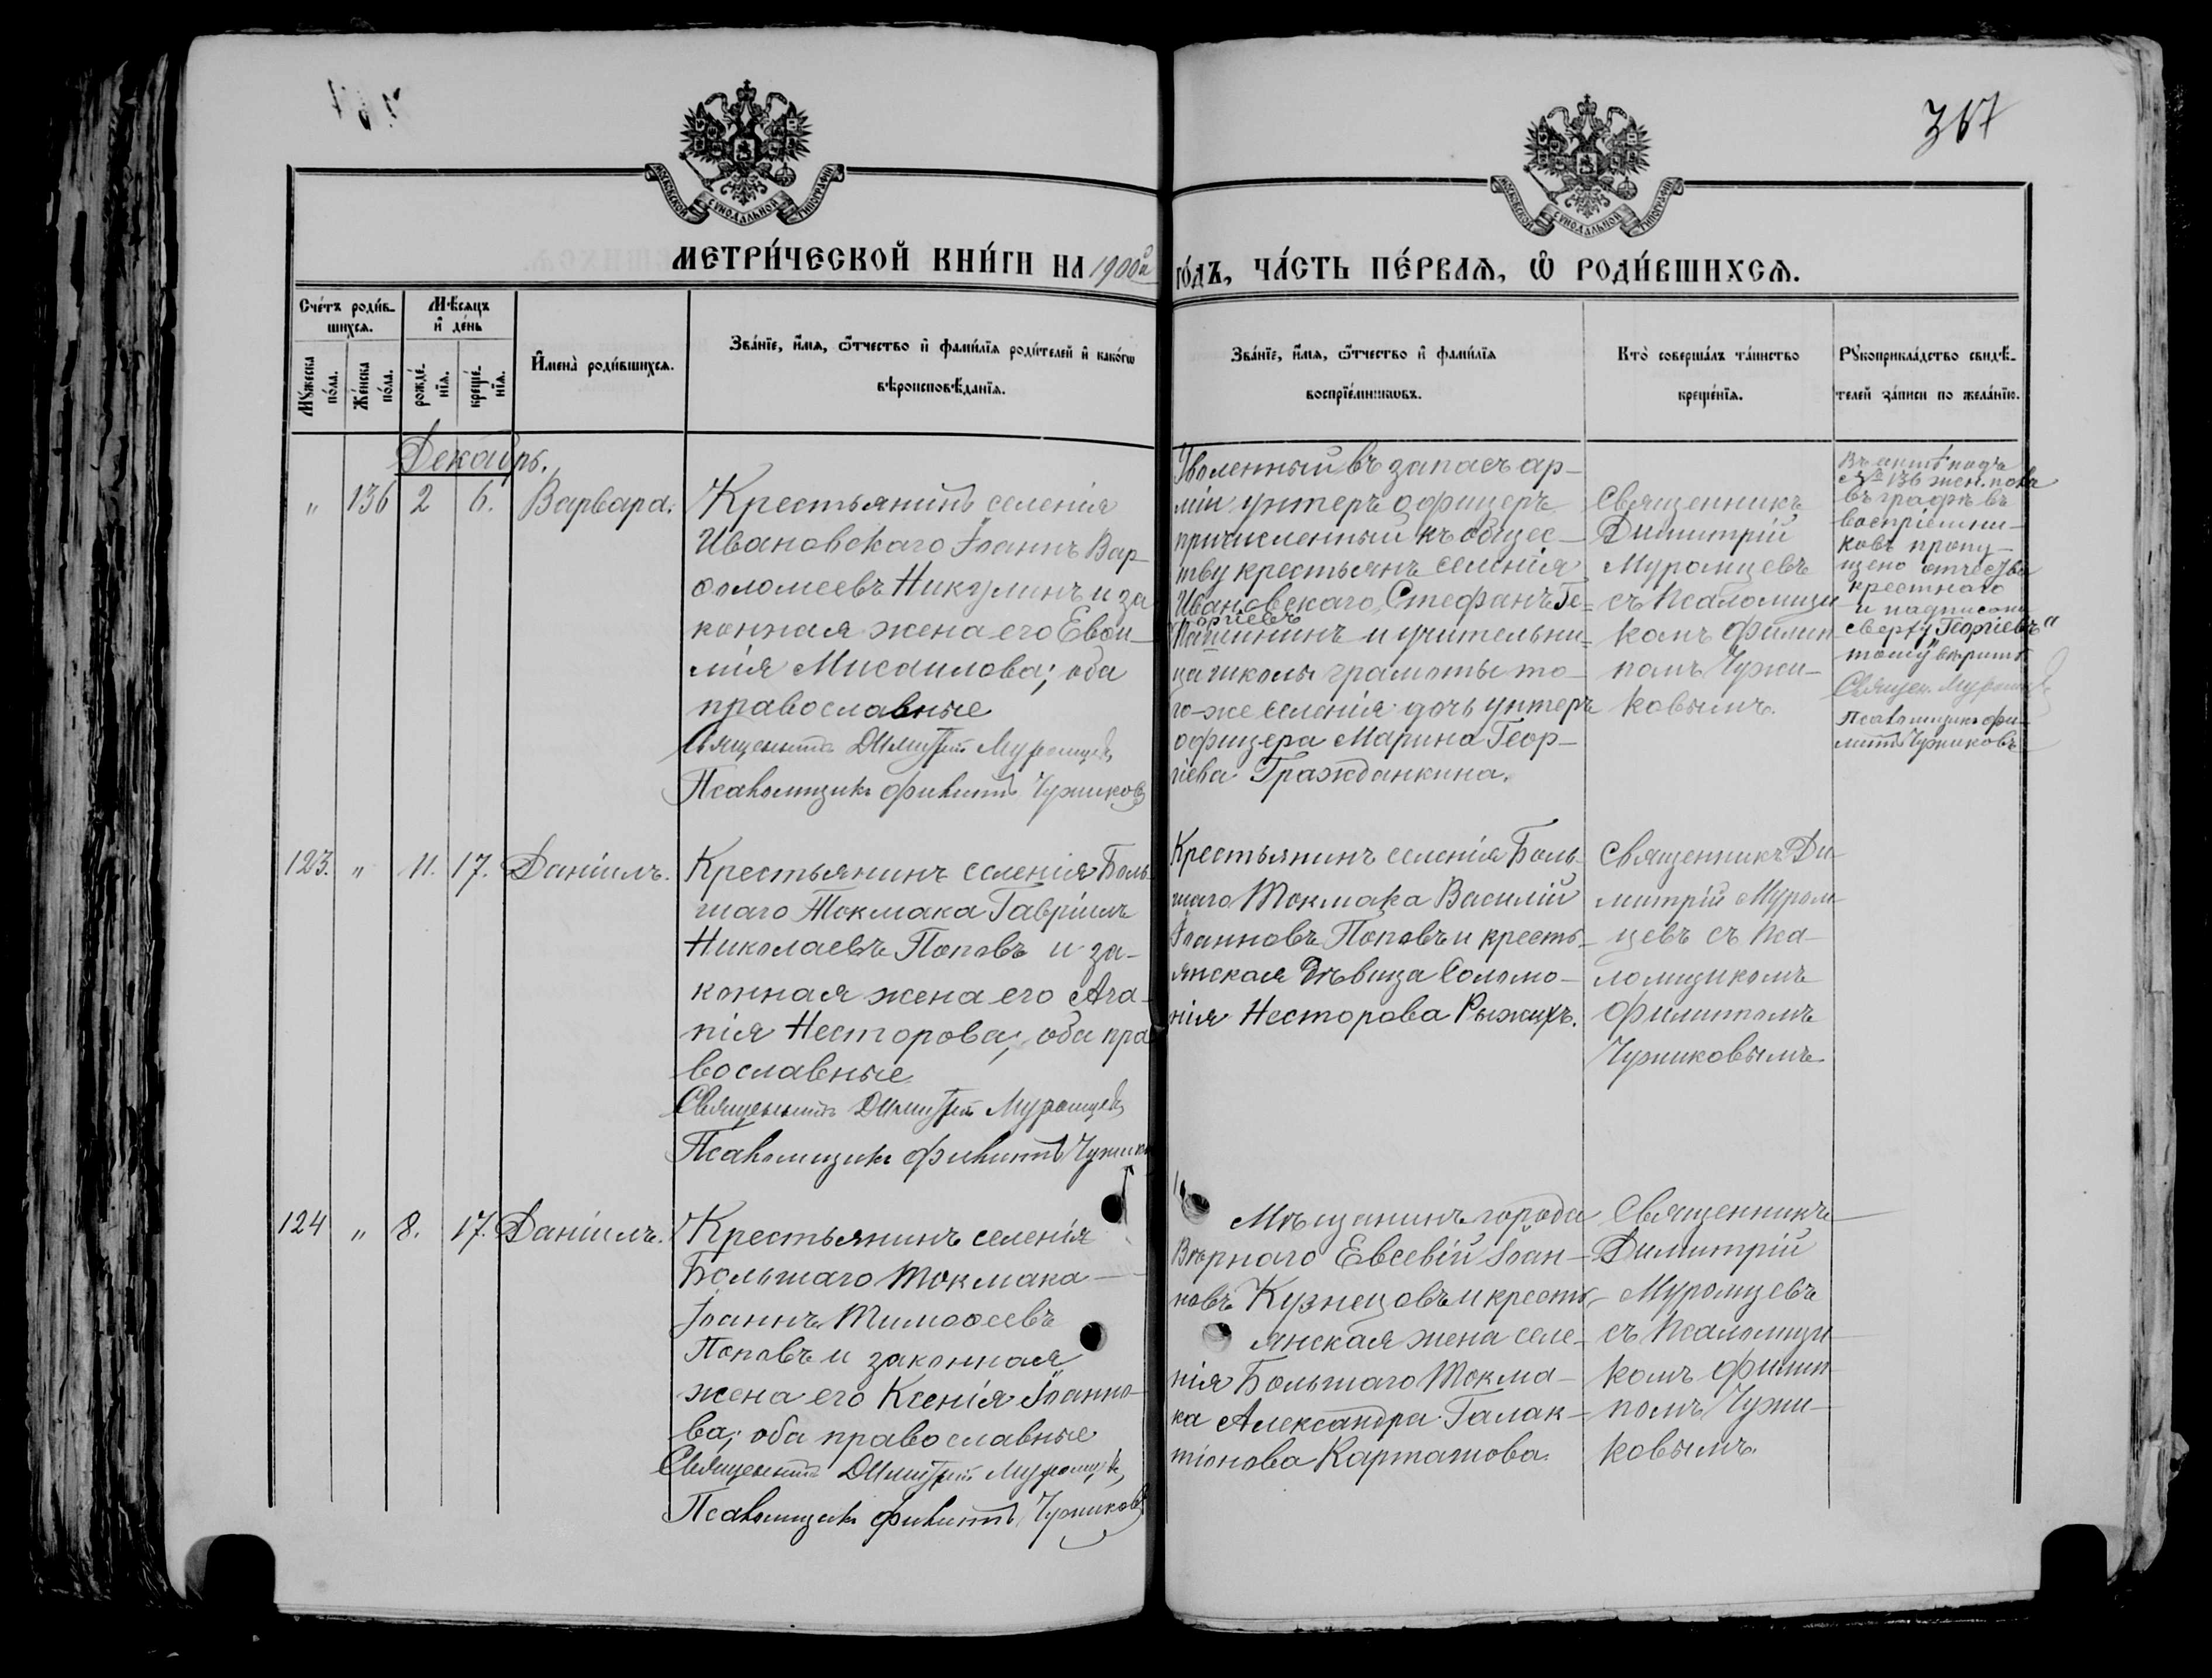 367
МОСКОВСКОЙ СѴНОДАЛЬНОЙ ТИПОГРАФІИ
МОСКОВСКОЙ СѴНОДАЛЬНОЙ ТИПОГРАФІИ
МЕТРИ́ЧЕСКОЙ КНИ́ГИ НА 1900й
ГО́ДЪ, ЧА́СТЬ ПЕ́РВАѦ, Ѡ҆ РОДИ́ВШИХСѦ.
Сче́тъ роди́в-
шихсѧ.
Мѣ́сѧцъ
и҆ де́нь
Мꙋ́жеска
по́ла.
Же́нска
по́ла.
рожде́-
нїѧ.
креще́-
нїѧ.
И҆мена̀ роди́вшихсѧ.
Зва́нїе, и҆́мѧ, ѻ҆́тчество и҆ фами́лїѧ роди́телей и҆ како́гѡ
вѣроисповѣ́данїѧ.
Зва́нїе, и҆́мѧ, ѻ҆́тчество и҆ фами́лїѧ
воспрїе́мникѡвъ.
Кто̀ соверша́лъ та́инство
креще́нїѧ.
Рꙋкоприкла́дство свидѣ́-
телей за́писи по жела́нїю.
Декабрь.
" 136 2 6. Варвара.
Крестьянинъ селенія
Ивановскаго Іоаннъ Вар-
ѳоломеевъ Никулинъ и за
конная жена его Евѳи-
мія Мисаилова; оба
православные
Священникъ Димитрій Муромцевъ
Псаломщикъ Филиппъ Чужиковъ
Уволенный въ запасъ ар-
міи унтеръ офицеръ
причисленный къ общес-
тву крестьянъ селенія
Ивановскаго Стефанъ Ге-
оргіевъ
и учительни-
ца школы грамоты то-
го-же селенія дочь унтеръ
офицера Марина Геор-
гіева Гражданкина.
Священникъ
Димитрій
Муромцевъ
съ Псаломщи
комъ Филип-
помъ Чужи-
ковымъ.
Въ актѣ подъ
№ 136 жен. пола
въ графѣ въ
воспріемни-
ковъ пропу-
щено отчество
крестнаго
и надписано
сверху „Георгіевъ"
тому вѣрить
Священ. Муромцевъ
Псаломщикъ Фи-
липпъ Чужиковъ
123. " 11. 17. Даніилъ.
Крестьянинъ селенія Боль-
шаго Токмака Гавріилъ
Николаевъ Поповъ и за-
конная жена его Ага-
пія Несторова; оба пра
вославные
Священникъ Димитрій Муромцевъ
Псаломщикъ Филиппъ Чужиков
Крестьянинъ селенія Боль-
шаго Токмака Василій
Іоанновъ Поповъ и кресть-
янская дѣвица Соломо-
нія Несторова Рыжихъ.
Священникъ Ди-
митрій Муром-
цевъ съ Пса-
ломщикомъ
Филиппомъ
Чужиковымъ
124 " 8. 17. Даніилъ.
Крестьянинъ селенія
Большаго Токмака
Іоаннъ Тимоѳеевъ
Поповъ и законная
жена его Ксенія Іоанно-
ва; оба православные
Священникъ Димитрій Муромцевъ
Псаломщикъ Филиппъ Чужиковъ
Мѣщанинъ города
Вѣрнаго Евсевій Іоан-
новъ Кузнецовъ и кресть-
янская жена селе-
нія Большаго Токма-
ка Александра Галак-
тіонова Карташова.
Священникъ
Димитрій
Муромцевъ
съ Псаломщи
комъ Филип-
помъ Чужи-
ковымъ.